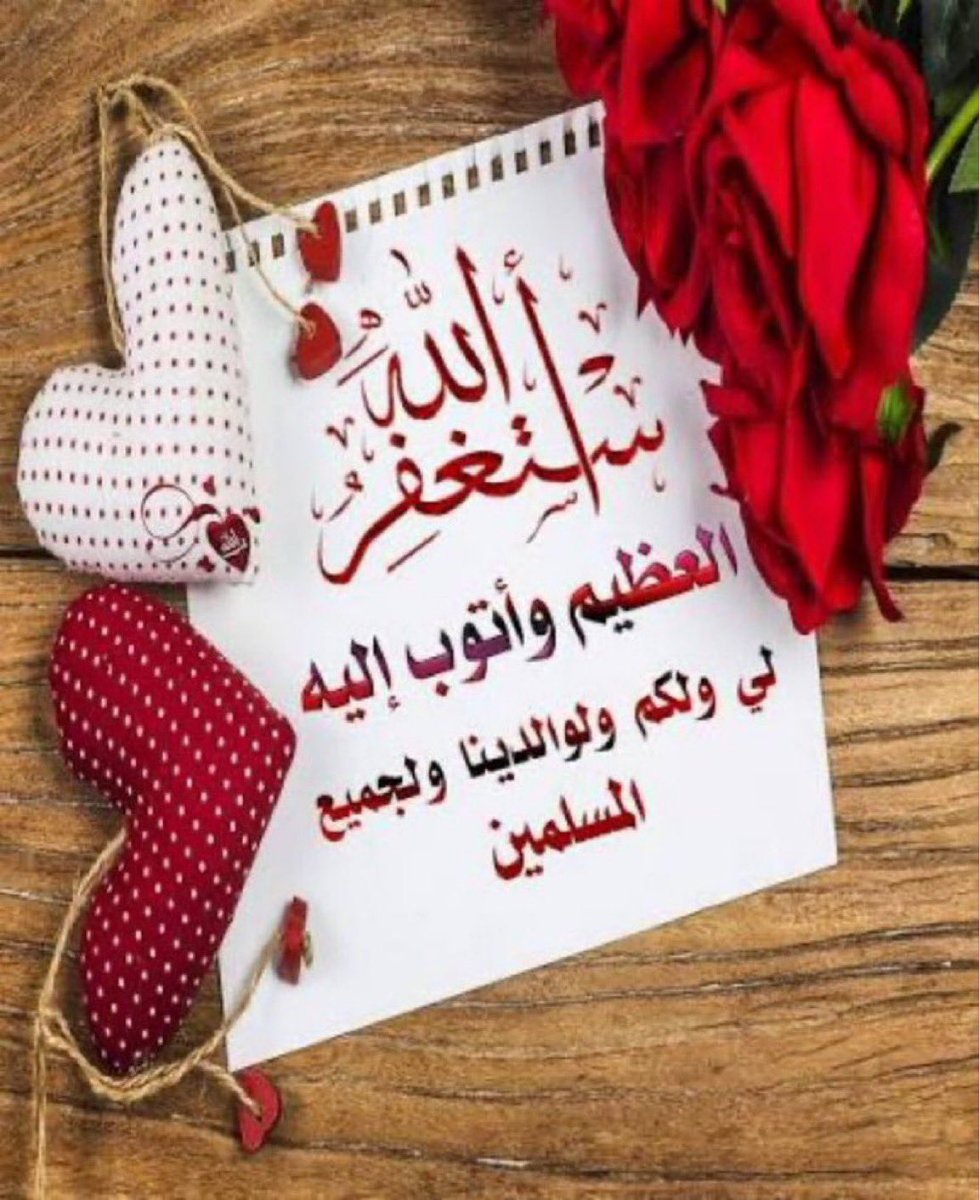 أستغفر الله
العظيم وأتوب إليه
لي ولكم ولوالدينا ولجميع
المسلمين